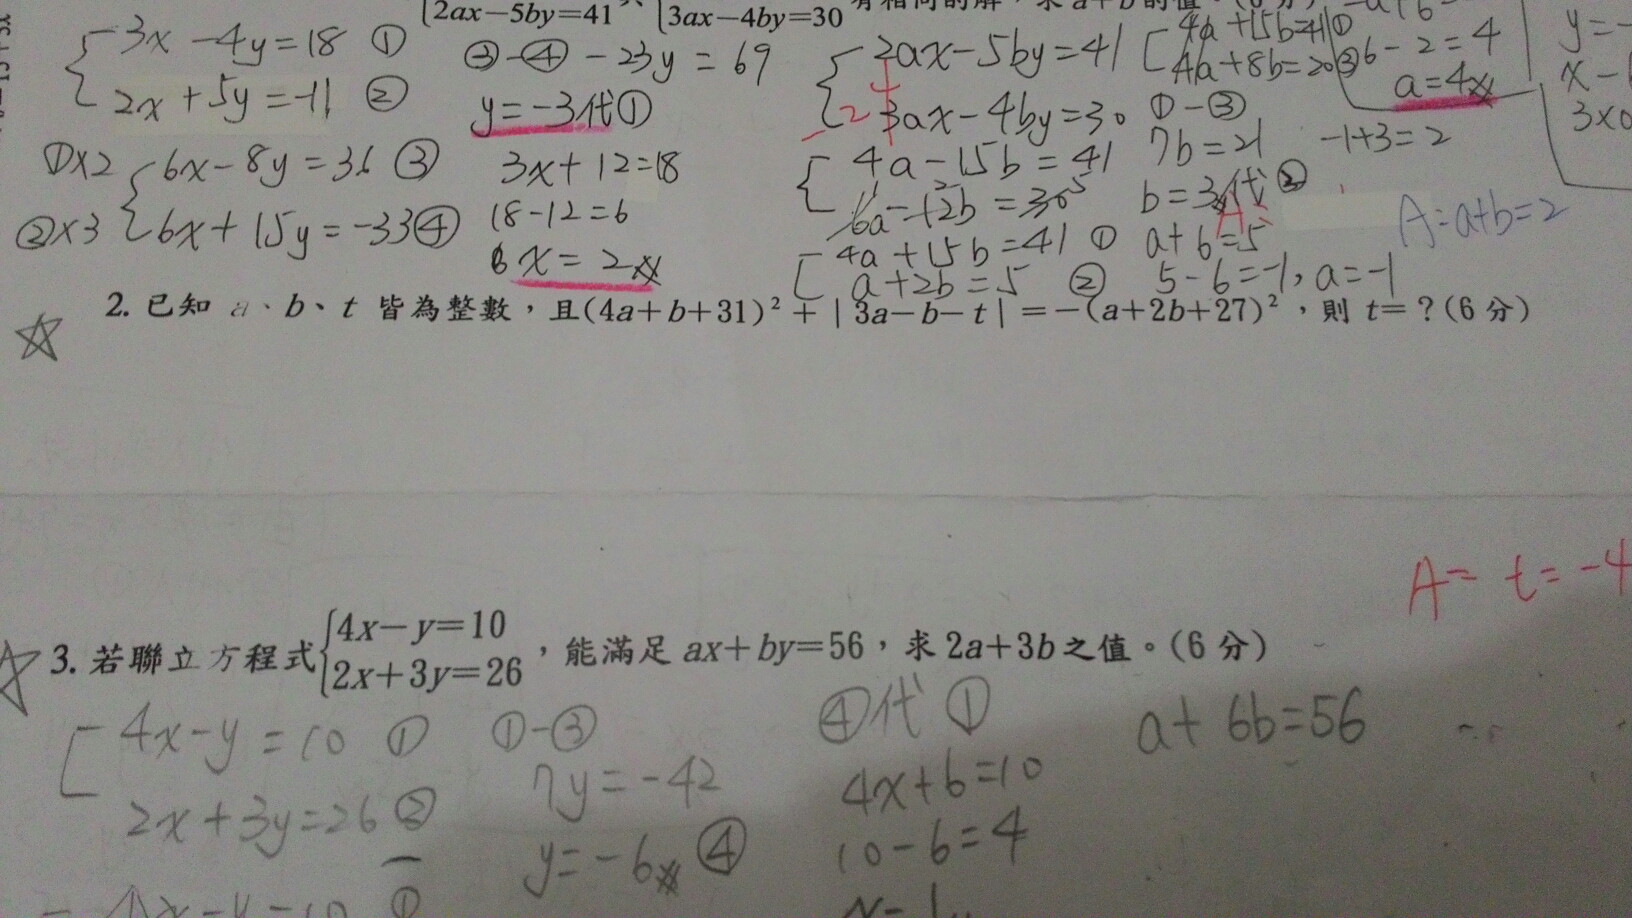 2ax－5by=41、 3ax－4by=30
3x－4y=18 ①
2x+5y=-11 ②
①×2 6x－8y=36 ③
②×3 6x+15y=-33 ④
③-④ -23y=69
y=-3代①
3x+12=18
18-12=6
x=2
2ax-5by=41
3ax-4by=30
4a-15b=41
4a+15b=41 ①
a+2b=5 ②
4a+15b=41①
4a+8b=20③
①-③
7b=21
b=3代②
a+6=5
5-6=-1, a=-1
6-2=4
a=4
-1+3=2
A=a+b=2
y=-
x-
2. 已知 a、b、t 皆為整數，且(4a+b+31)²+|3a-b-t|=-(a+2b+27)²，則 t=？(6分)
A= t=-4
3. 若聯立方程式 4x-y=10
2x+3y=26 ，能滿足 ax+by=56，求 2a+3b 之值。(6分)
4x-y=10 ①
2x+3y=26 ②
4x-y=10 ①
①-③
7y=-42
y=-6 ④
④代①
4x+6=10
10-6=4
a+6b=56